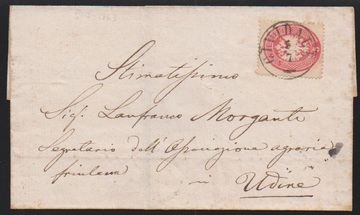 1863
CIVIDALE
Stimatissimo
Sig. Lanfranco Morgante
Segretario dell'Associazione agraria
friulana
in
Udine